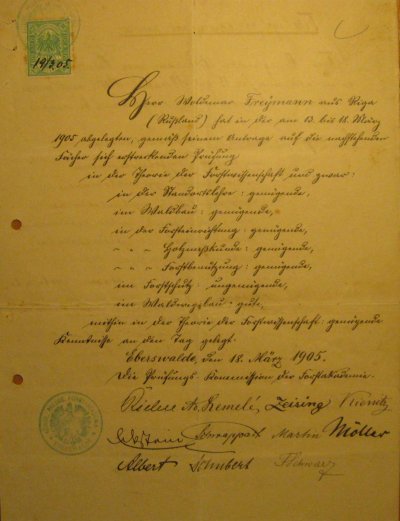 19/3.05.
Herr Woldemar Freymann aus Riga
(Rußland) hat in der am 13. bis 18. März
1905 abgelegten, gemäß seinem Antrage auf die nachstehenden
Fächer sich erstreckenden Prüfung
in der Theorie der Forstwissenschaft und zwar:
in der Standortslehre: genügende,
im Waldbau: genügende,
in der Forsteinrichtung: genügende,
" " " Holzmeßkunde: genügende,
" " " Forstbenutzung: genügende,
im Forstschutz: ungenügende,
im Waldwegebau: gute,
mithin in der Theorie der Forstwissenschaft: genügende
Kenntnisse an den Tag gelegt.
Eberswalde, den 18. März 1905.
Die Prüfungs-Kommission der Forstakademie.
Remelé, Zeising
Eckstein Schwappach Martin Möller
Albert Schubert Schwarz